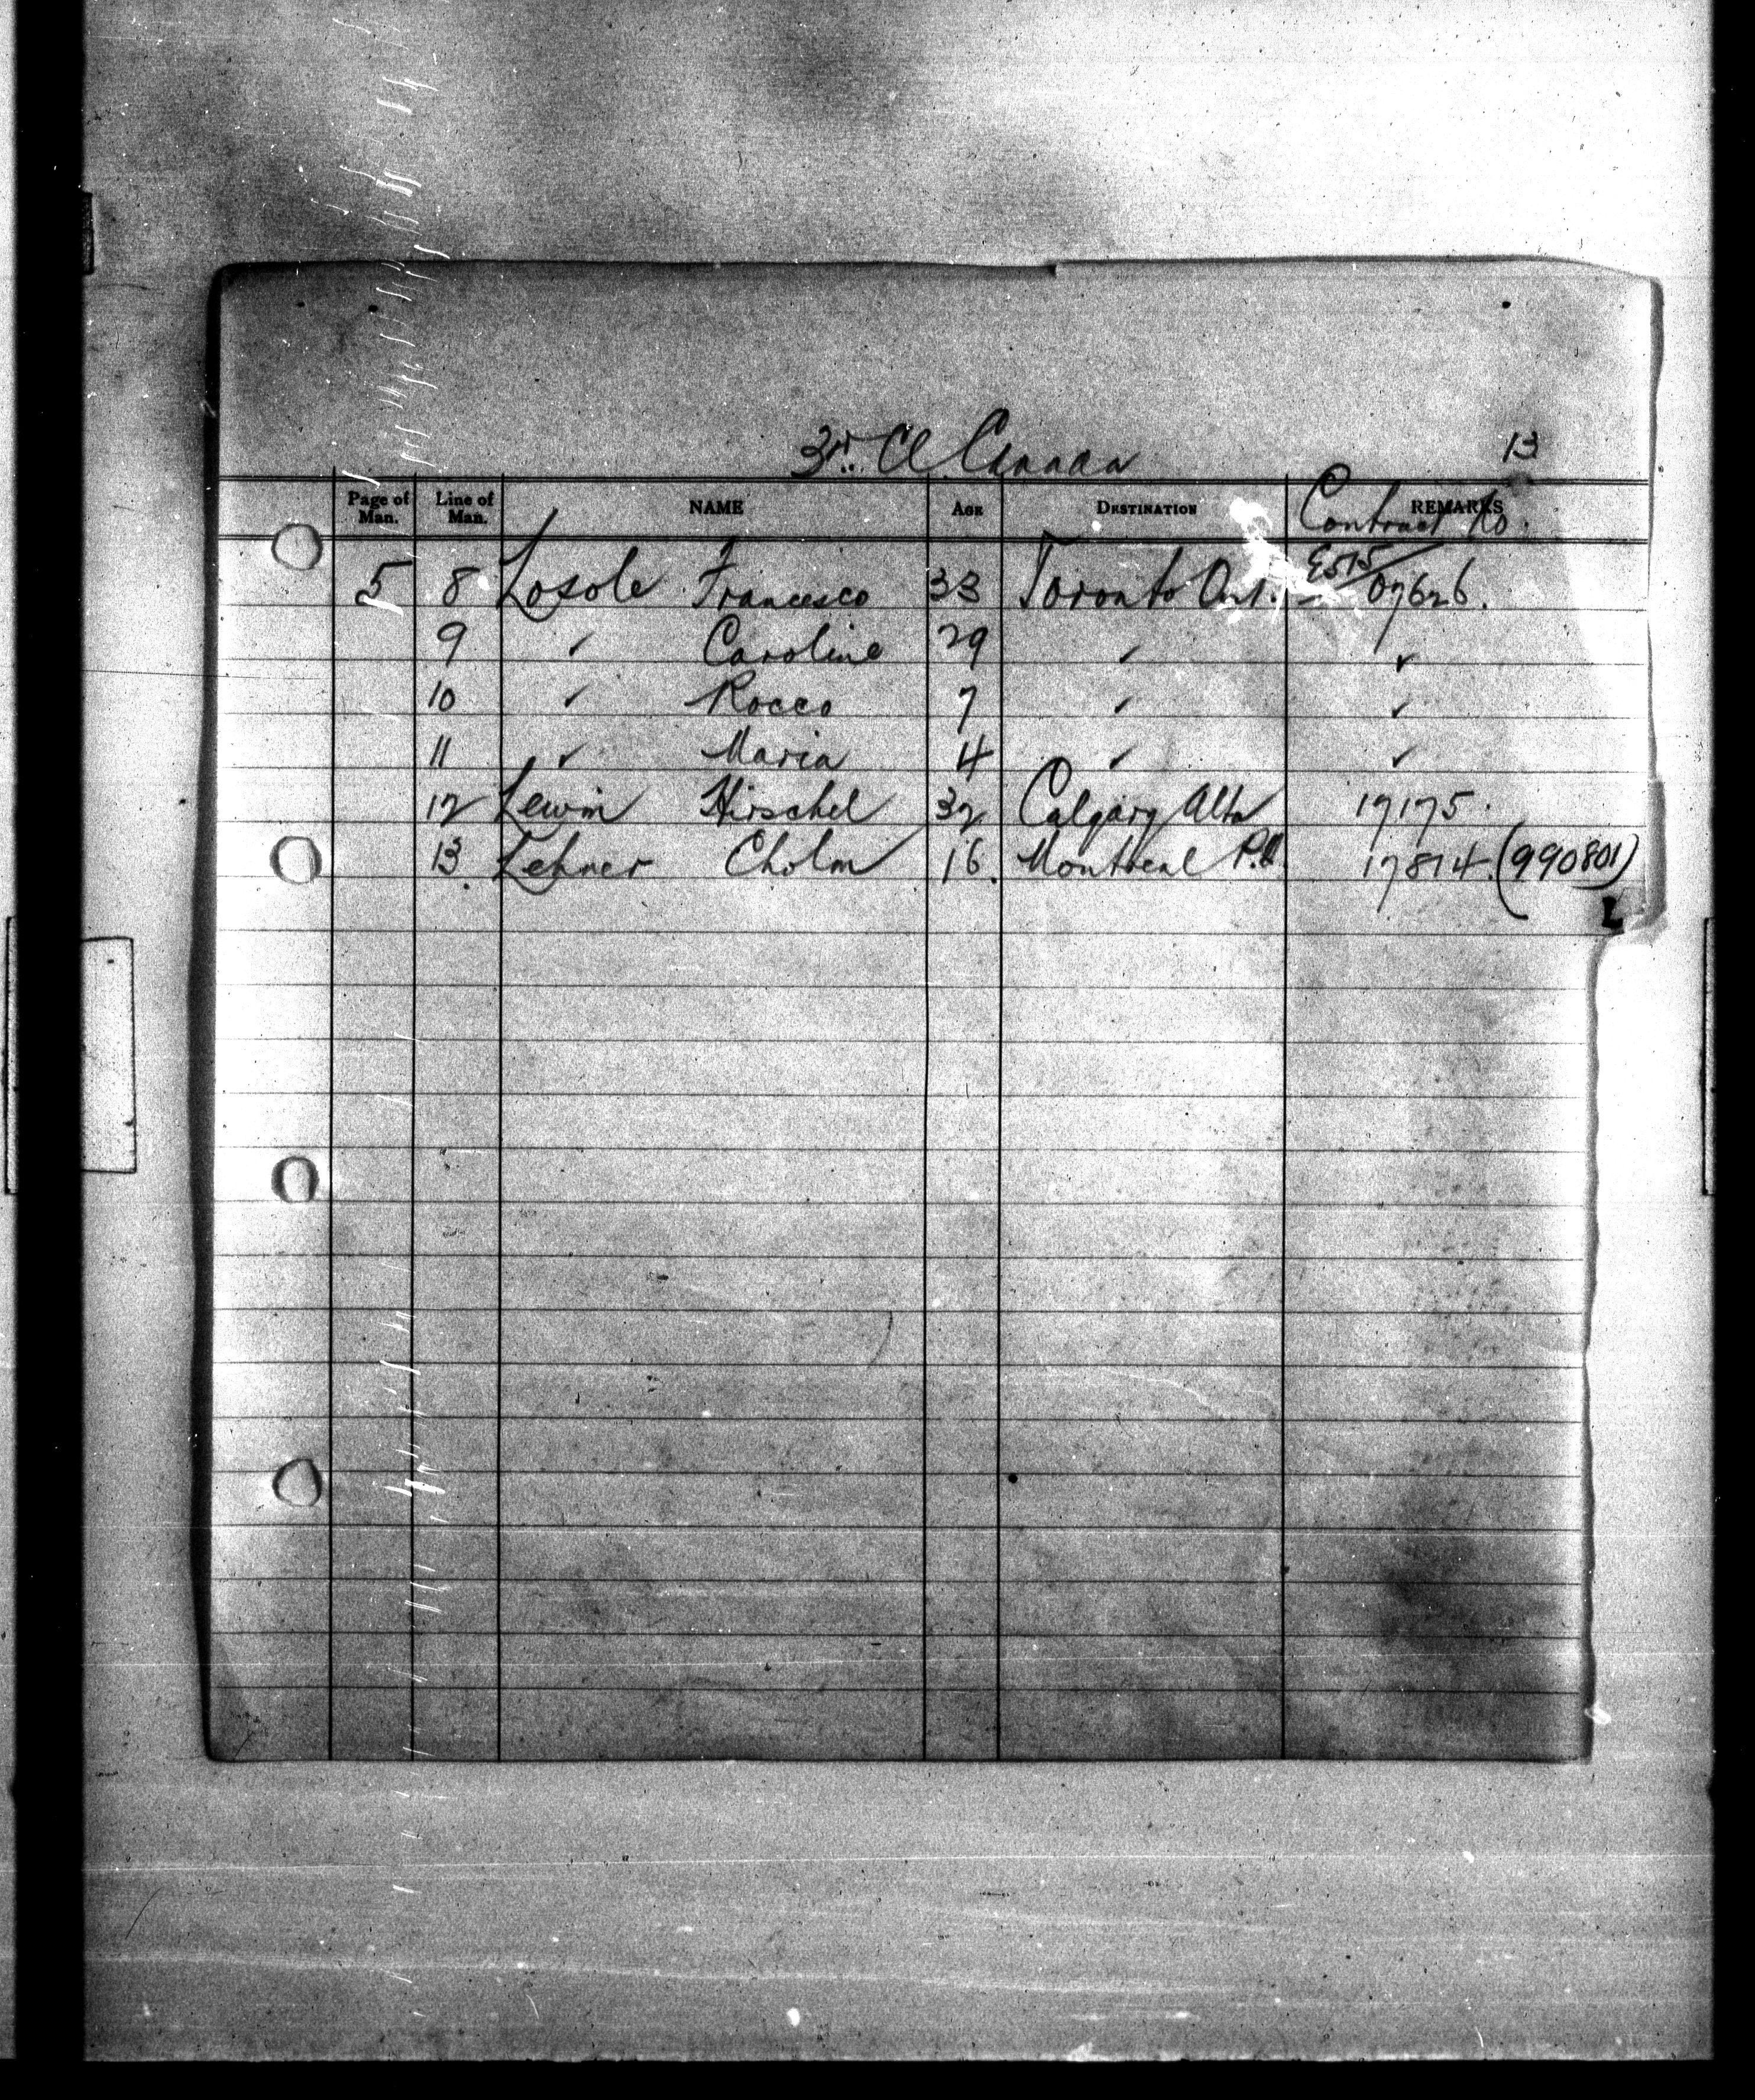 3rd. Cl. Canada 13
Page of Man. Line of Man. NAME AGE DESTINATION REMARKS Contract No.
5 8 Losole Francesco 33 Toronto Ont. E515/07626.
9 " Caroline 29 " "
10 " Rocco 7 " "
11 " Maria 4 " "
12 Lewin Hirschel 32 Calgary Alta 17175.
13. Lehrer Cholm 16. Montreal P.Q. 17814. (990801)
L